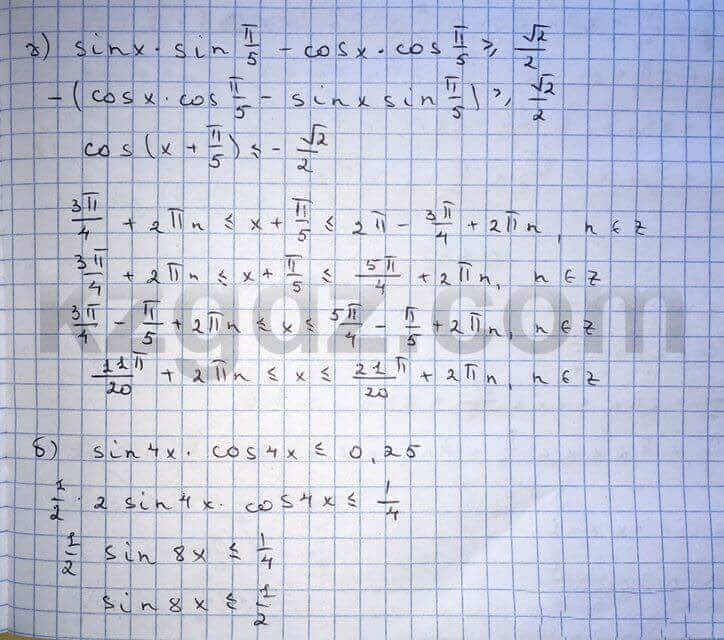 г) sinx · sin π/5 - cosx · cos π/5 ≥ √2/2
-(cosx · cos π/5 - sinx sin π/5) ≥ √2/2
cos(x + π/5) ≤ - √2/2
3π/4 + 2πn ≤ x + π/5 ≤ 2π - 3π/4 + 2πn, n ∈ z
3π/4 + 2πn ≤ x + π/5 ≤ 5π/4 + 2πn, n ∈ z
3π/4 - π/5 + 2πn ≤ x ≤ 5π/4 - π/5 + 2πn, n ∈ z
kzgdz.com
11π/20 + 2πn ≤ x ≤ 21π/20 + 2πn, n ∈ z
б) sin4x · cos4x ≤ 0,25
1/2 · 2 sin4x · cos4x ≤ 1/4
1/2 sin 8x ≤ 1/4
sin8x ≤ 1/2